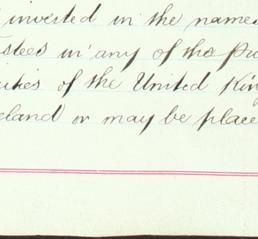 invested in the names
stees in any of the Pu
ities of the United King
eland or may be place